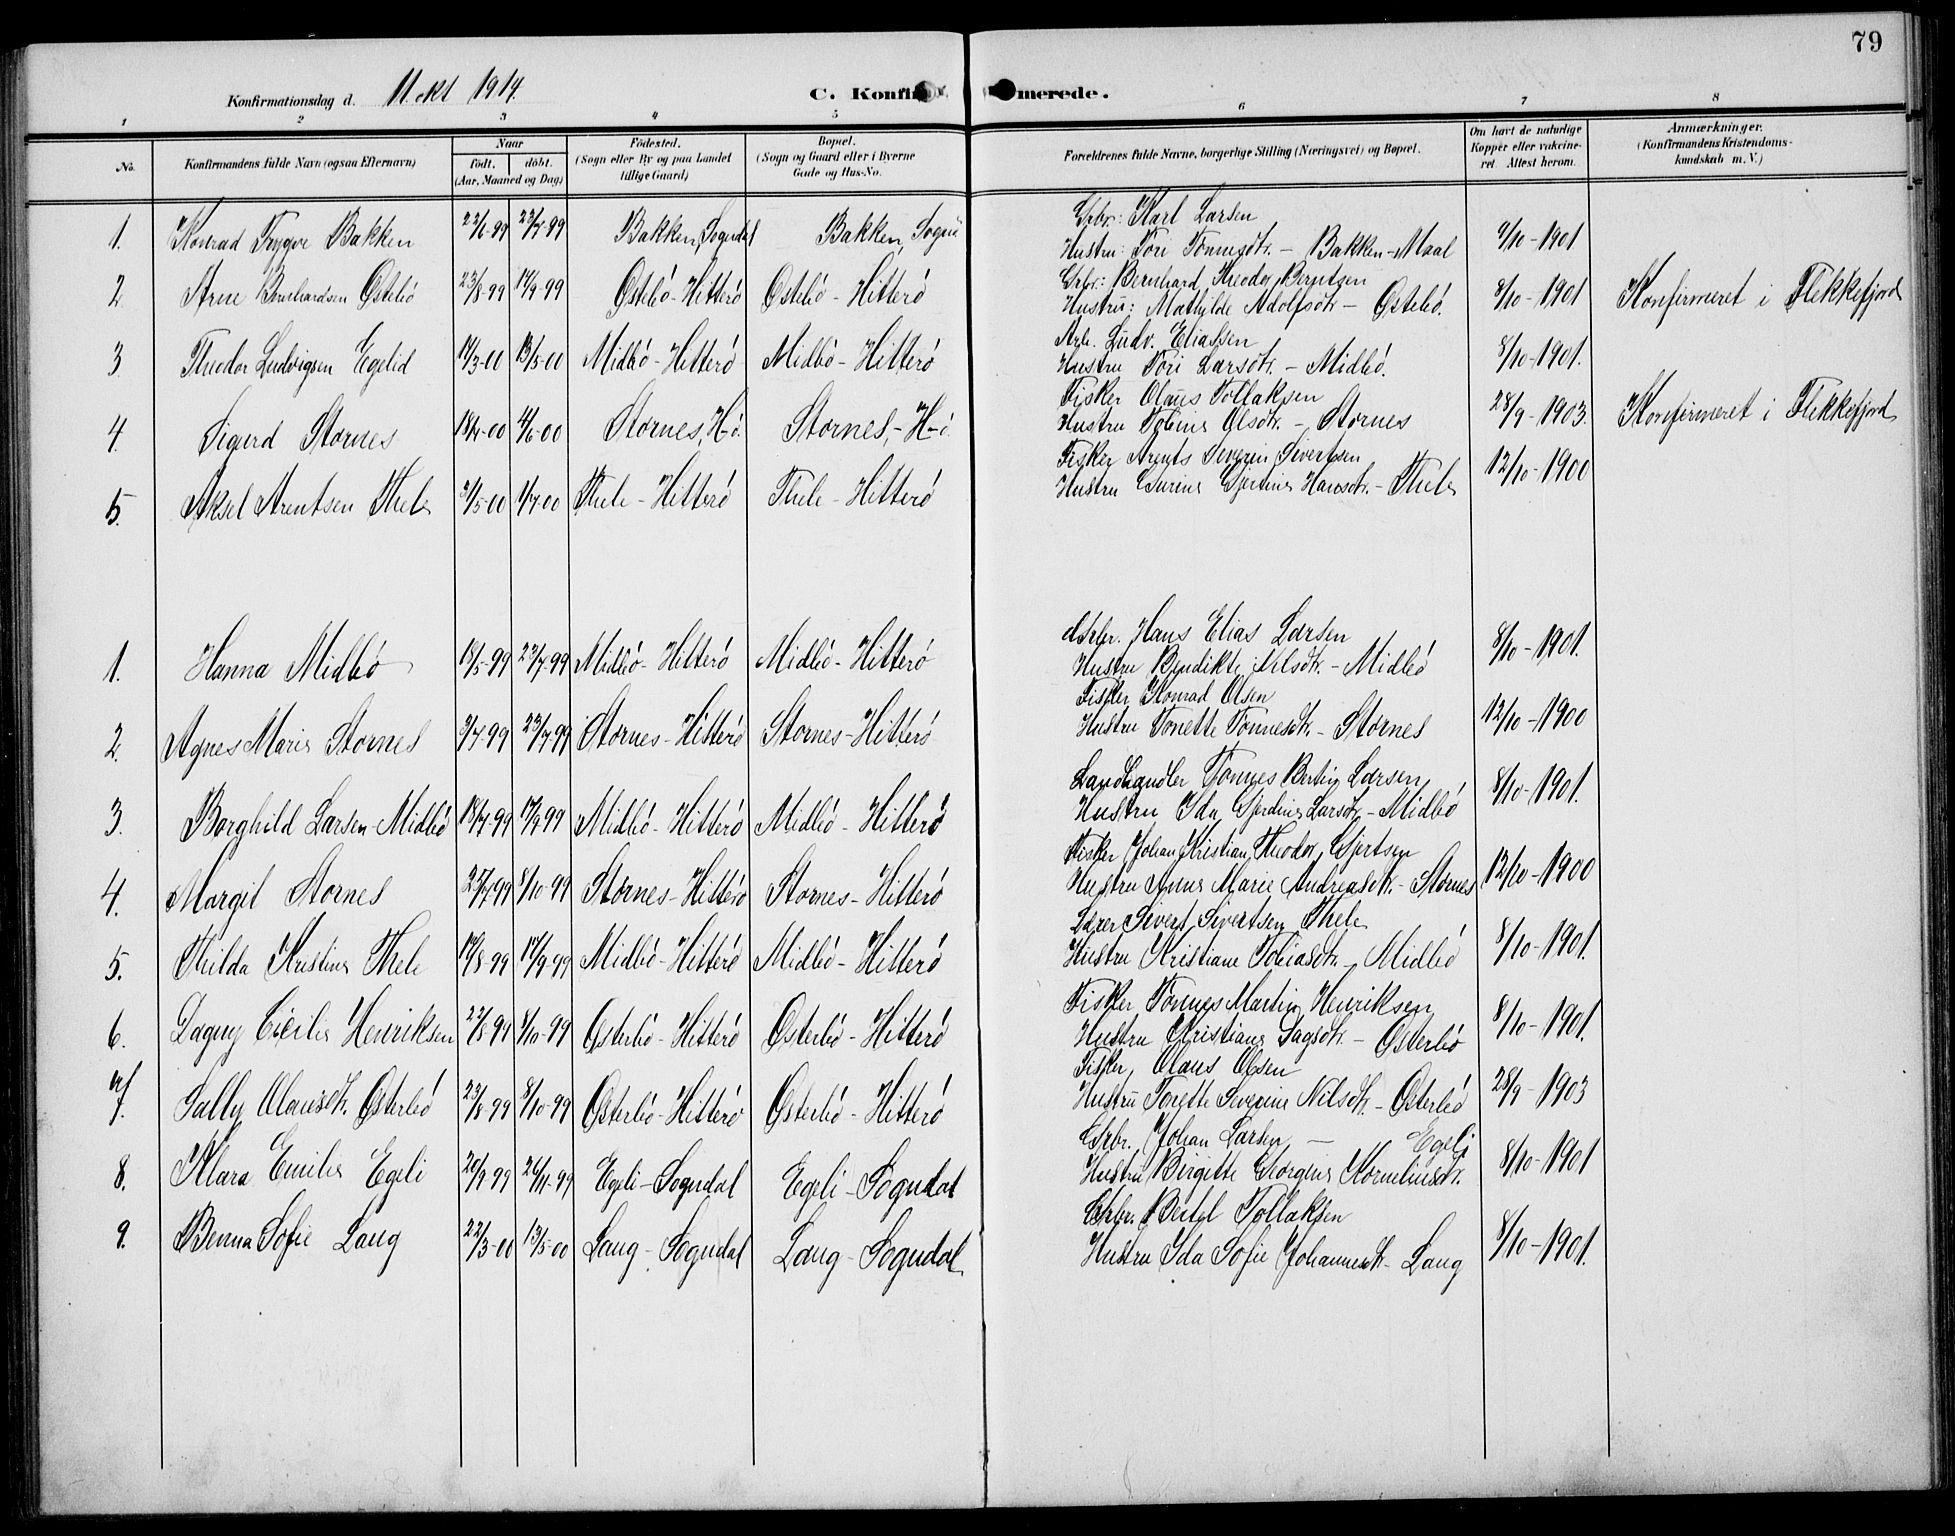 79
Konfirmationsdag d. 11. okt 1914. C. Konfirmerede.
1 2 3 4 5 6 7 8
No. Konfirmandens fulde Navn (ogsaa Efternavn) Naar födt. döbt. (Aar, Maaned og Dag) Födested. (Sogn eller By og paa Landet tillige Gaard) Bopæl. (Sogn og Gaard eller i Byerne Gade og Hus-No. Forældrenes fulde Navne, borgerlige Stilling (Næringsvei) og Bopæl. Om havt de naturlige Kopper eller vakcineret. Attest herom. Anmærkninger. (Konfirmandens Kristendomskundskab m. V.)
Grbr: Karl Larsen
1. Konrad Trygve Bakken 22/6-99 23/7-99 Bakken, Sogndal Bakken, Sogn Hustru: Tori Tønnesdtr. - Bakken-Maal 9/10-1901
Grbr: Bernhard Theodor Berntsen
2 Arne Bernhardsen Østebö 23/8-99 17/9-99 Østebö-Hitterö Østebö-Hitterö Hustru: Mathilde Adolfsdtr - Østebö. 8/10-1901 Konfirmeret i Flekkefjord
Arb. Ludv. Eliassen
3 Theodor Ludvigsen Egelid 14/3-00 13/5-00 Midbö-Hitterö Midbö-Hitterö Hustru Tori Larsdtr. - Midbö. 8/10-1901.
Fisker Olaus Tollaksen
4. Sigurd Stornes 18/4-00 4/6-00 Stornes, H-ö. Stornes,-H-ö. Hustru Tobine Olsdtr. - Stornes 28/9-1903. Konfirmeret i Flekkefjord
Fisker Arents Severin Sivertsen
5. Aksel Arentsen Thele 2/5-00 1/7-00 Thele-Hitterö Thele-Hitterö Hustru Gurine Gjertine Hansdtr.-Thele 12/10-1900
Grbr. Hans Elias Larsen
1. Hanna Midbö 18/5-99 23/7-99 Midbö-Hitterö Midbö-Hitterö Hustru Bendikte Nilsdtr.-Midbö 8/10-1901.
Fisker Konrad Olsen
2. Agnes Marie Stornes 3/7-99 23/7-99 Stornes-Hitterö Stornes-Hitterö Hustru Tonette Tønnesdtr.-Stornes 12/10-1900
Landhandler Tønnes Bertin Larsen
3. Borghild Larsen-Midbö 18/7-99 17/9-99 Midbö-Hitterö Midbö-Hitterö Hustru Ida Gjerdine Larsdtr-Midbö 8/10-1901.
Fisker Johan Kristian Theodor Gjertsen
4. Margit Stornes 27/7-99 8/10-99 Stornes-Hitterö Stornes-Hitterö Hustru Anne Marie Andreasdtr.-Stornes 12/10-1900
Lærer Sivert Sivertsen Thele
5. Thilda Kristine Thele 19/8-99 17/9-99 Midbö-Hitterö Midbö-Hitterö Hustru Kristiane Tobiasdtr. Midbö 8/10-1901.
Fisker Tønnes Martin Henriksen
6. Dagny Cecilie Henriksen 22/8-99 8/10-99 Østerbö-Hitterö Østerbö-Hitterö Hustru Kristiane Sagsdtr.-Østerbö 8/10-1901.
Fisker Olaus Olsen
7. Sally Olausdtr. Østerbö 23/8-99 8/10-99 Østerbö-Hitterö Østerbö-Hitterö Hustru Tonette Severine Nilsdtr.-Østerbö 28/9-1903
Grbr. Johan Larsen - Egeli
8. Klara Emilie Egeli 20/9-99 26/11-99 Egeli-Sogndal Egeli-Sogndal Hustru Birgitte Georgine Korneliusdtr. 8/10-1901
Grbr. Bertel Tollaksen
9. Benna Sofie Laug 22/3-00 13/5-00 Laug-Sogndal Laug-Sogndal Hustru Ida Sofie Johannesdtr-Laug 8/10-1901.